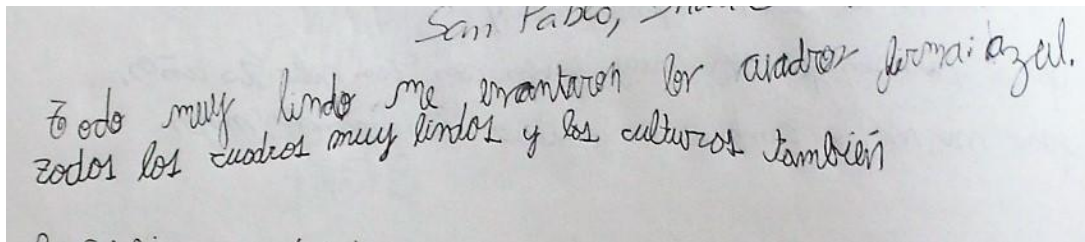 San Pablo,
Todo muy lindo me encantaron los cuadros azul.
todos los cuadros muy lindos y las culturas también